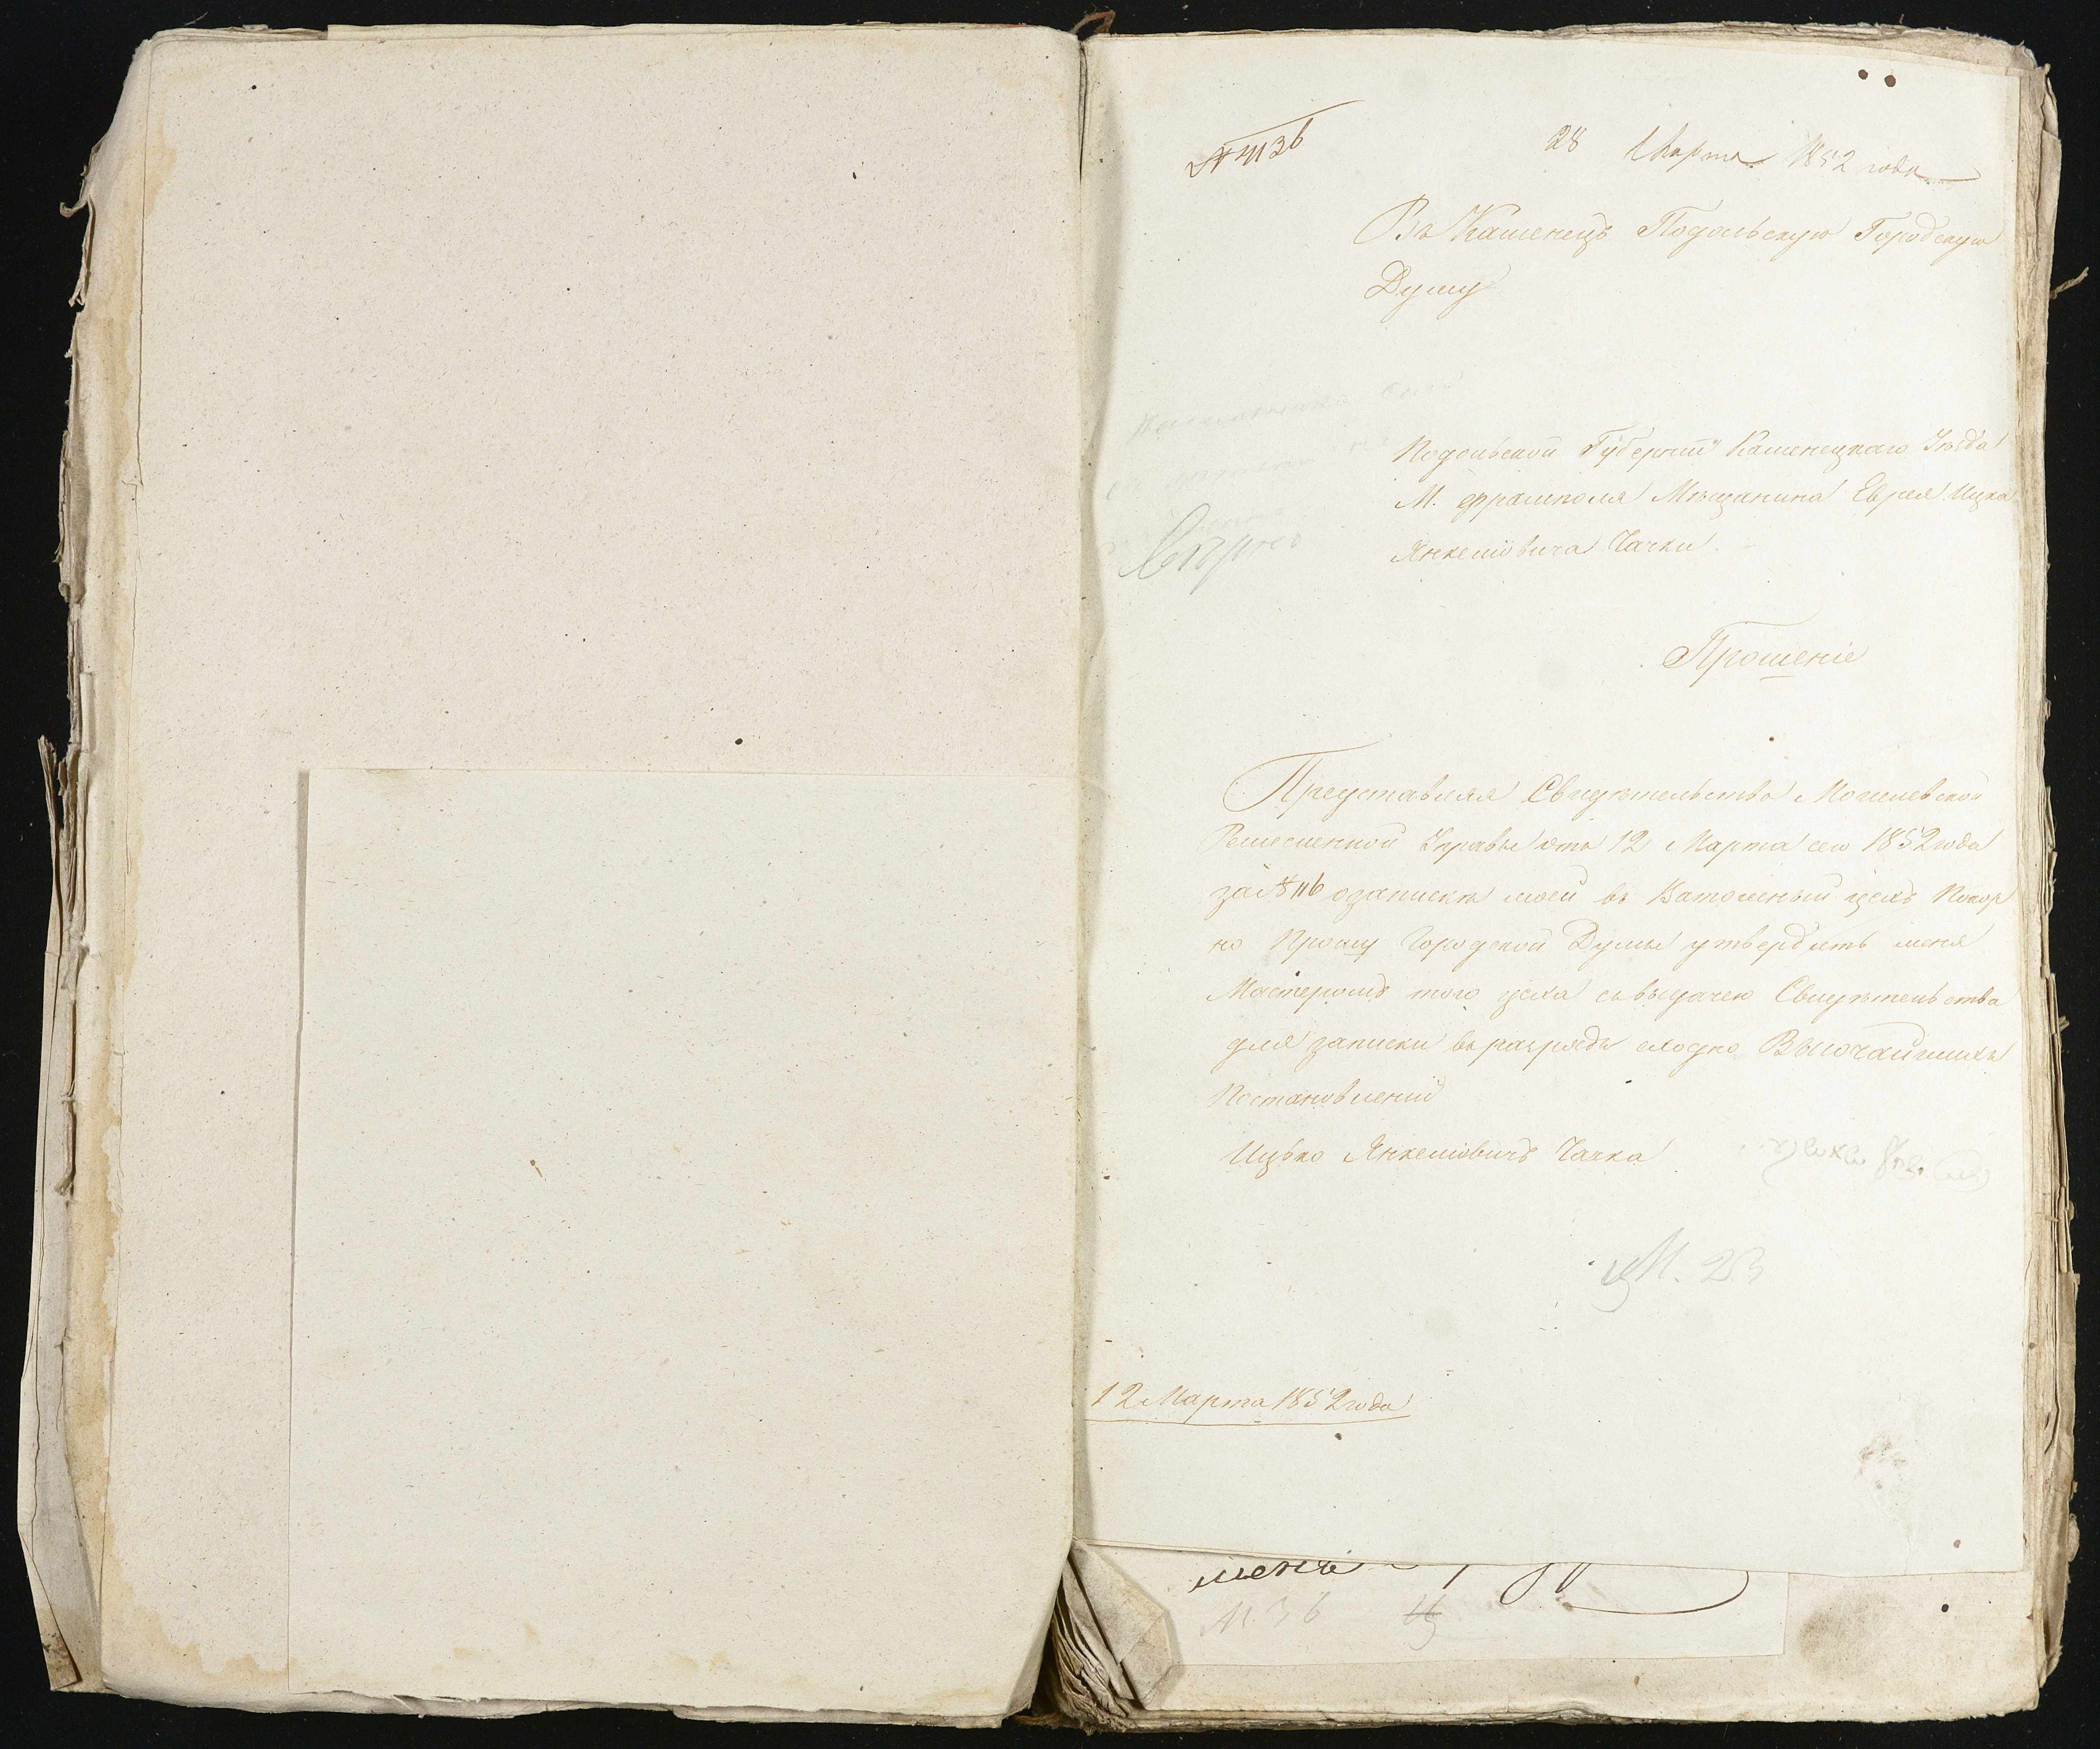 № 4136
28 Марта 1852 года
Въ Каменецъ Подольскую Городскую
Думу
Подольской Губерніи Каменецкаго Уѣзда
М. Фрамполя Мѣщанина Еврея Ицка
Янкелiовича Чачки
Вѣрно
Прошеніе
Представляя Свидѣтельство Могилевской
Ремесленной Управы отъ 12 Марта сего 1852 года
за № 116 о запискѣ моей въ цехъ Покор
но Прошу Городской Думы утвердить меня
Мастеромъ того цеха съ выдачею Свидѣтельства
для записки въ разрядъ сходно Высочайшихъ
Постановленій
Ицько Янкелiовичъ Чачка
М. 23
12 Марта 1852 года
меня
М. 36